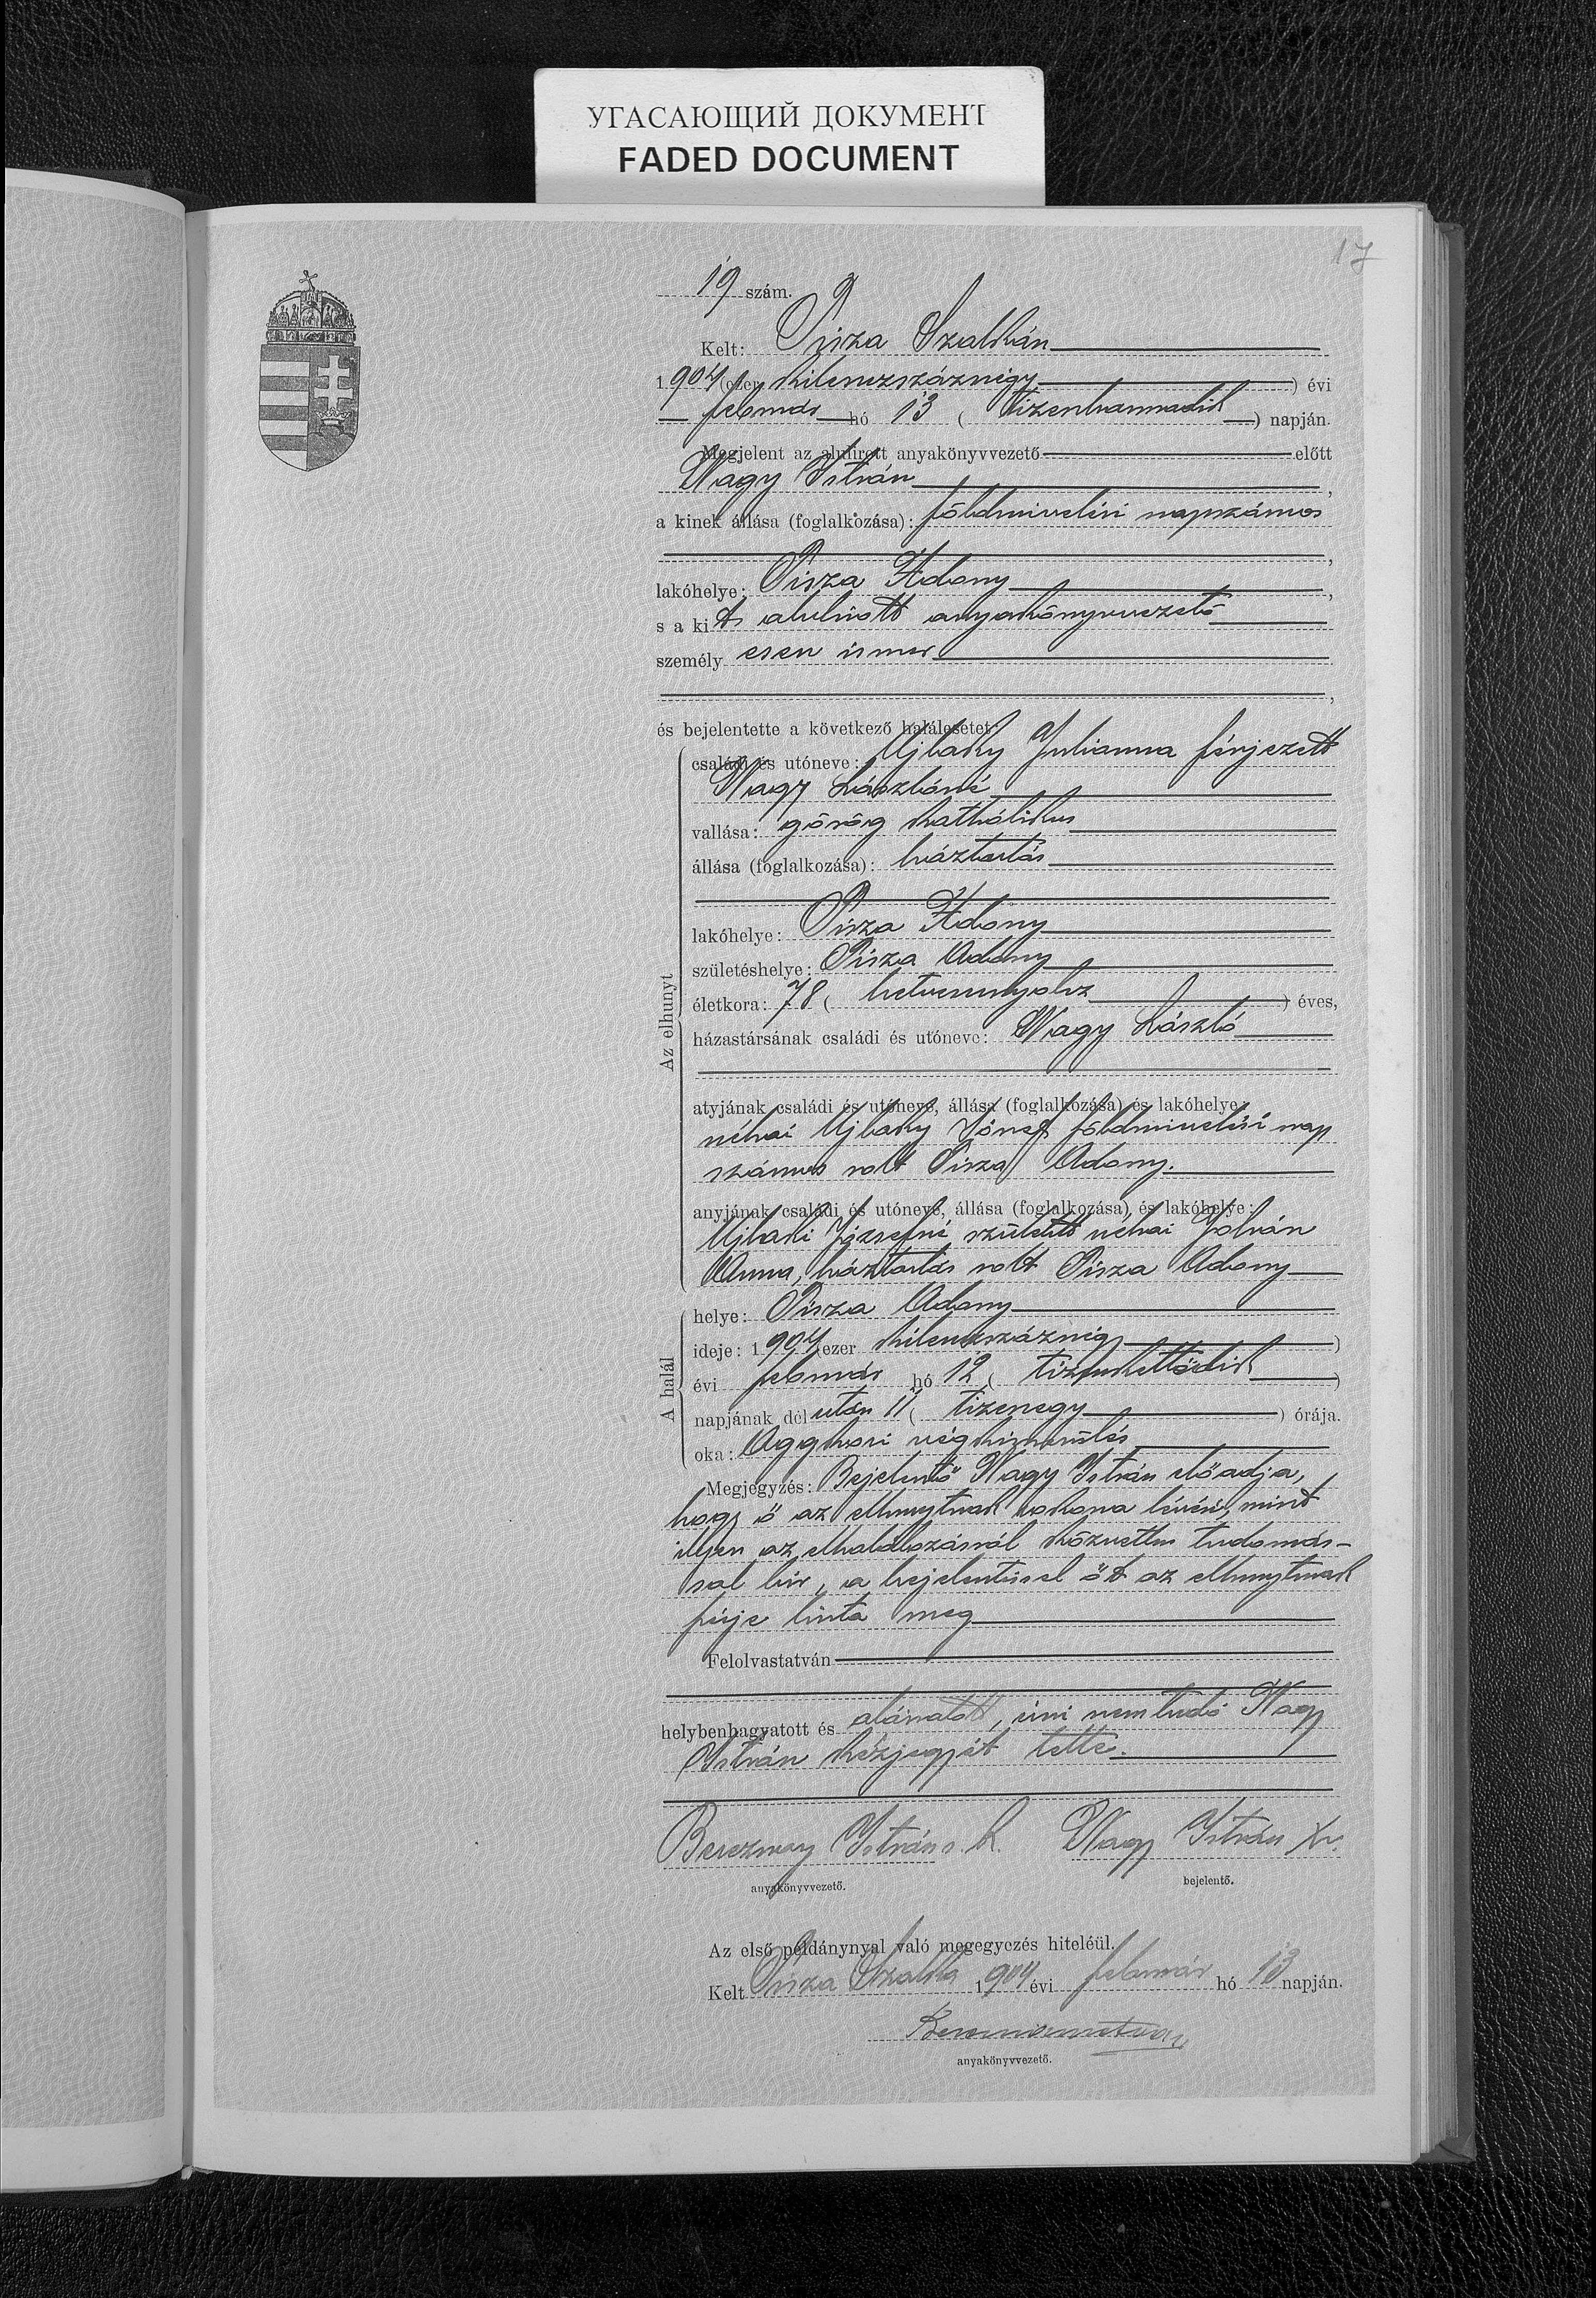 УГАСАЮЩИЙ ДОКУМЕНТ
FADED DOCUMENT
17
19 szám.
Kelt: Tisza Szalkán
1904 (ezer kilenczszáznégy) évi
február hó 13 (tizenharmadik) napján.
Megjelent az alulirott anyakönyvvezető előtt
Nagy István,
a kinek állása (foglalkozása): földmivelési napszámos
,
lakóhelye: Tisza Adony,
s a kit alulirott anyakönyvvezető
személyesen ismer
,
és bejelentette a következő halálesetet:
Az elhunyt
családi és utóneve: Ujlaky Julianna férjezett
Nagy Lászlóné
vallása: görög katholikus
állása (foglalkozása): háztartás
lakóhelye: Tisza Adony
születéshelye: Tisza Adony
életkora: 78 (hetvennyolcz) éves,
házastársának családi és utóneve: Nagy László
atyjának családi és utóneve, állása (foglalkozása) és lakóhelye:
néhai Ujlaky József földmivelési nap
számos volt Tisza Adony.
anyjának családi és utóneve, állása (foglalkozása) és lakóhelye:
Ujlaki Józsefné született néhai
Anna, háztartás volt Tisza Adony
A halál
helye: Tisza Adony
ideje: 1904 (ezer kilenczszáznégy)
évi február hó 12 (tizenkettödik)
napjának délután 11 (tizenegy) órája.
oka: Aggkori végkimerülés
Megjegyzés: Bejelentő Nagy István előadja,
hogy ő az elhunytnak rokona lévén, mint
ilyen az elhalálozásról közvetlen tudomás-
sal bir, a bejelentéssel őt az elhunytnak
férje bizta meg
Felolvastatván
helybenhagyatott és aláiratott, irni nem tudó Nagy
István kézjegyét tette.
István s. k. Nagy István
anyakönyvvezető. bejelentő.
Az első példánynyal való megegyezés hiteléül.
Kelt Tisza Szalka 1904 évi február hó 13 napján.
anyakönyvvezető.